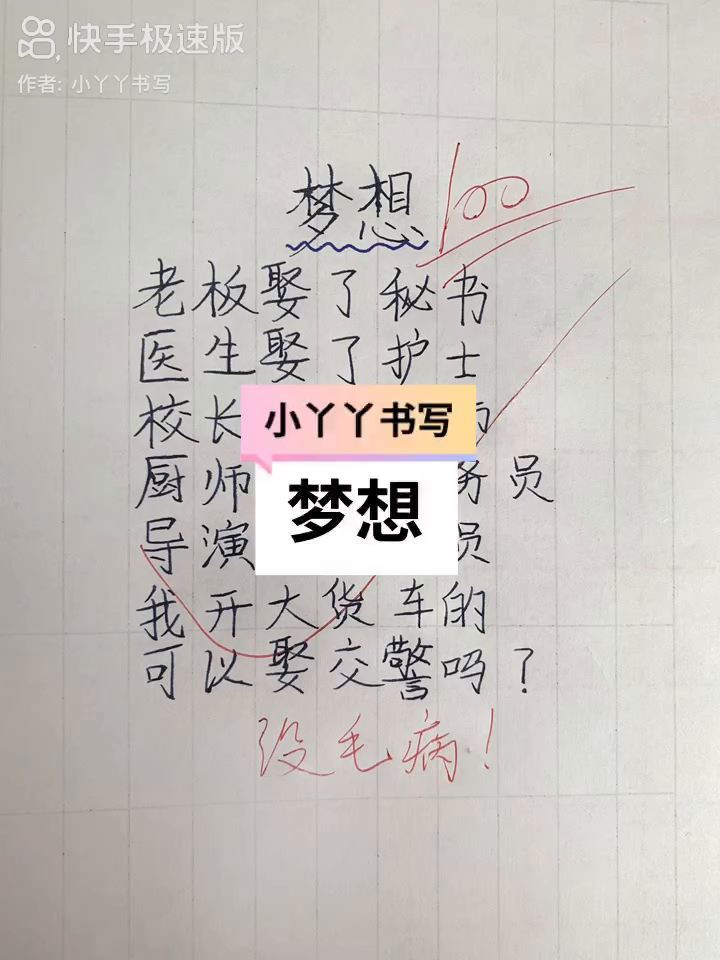 快手极速版
作者: 小丫丫书写
梦想
100
老板娶了秘书
医生娶了护士
校长
厨师 务员
导演 员
我开大货车的
可以娶交警吗？
没毛病！
小丫丫书写
梦想